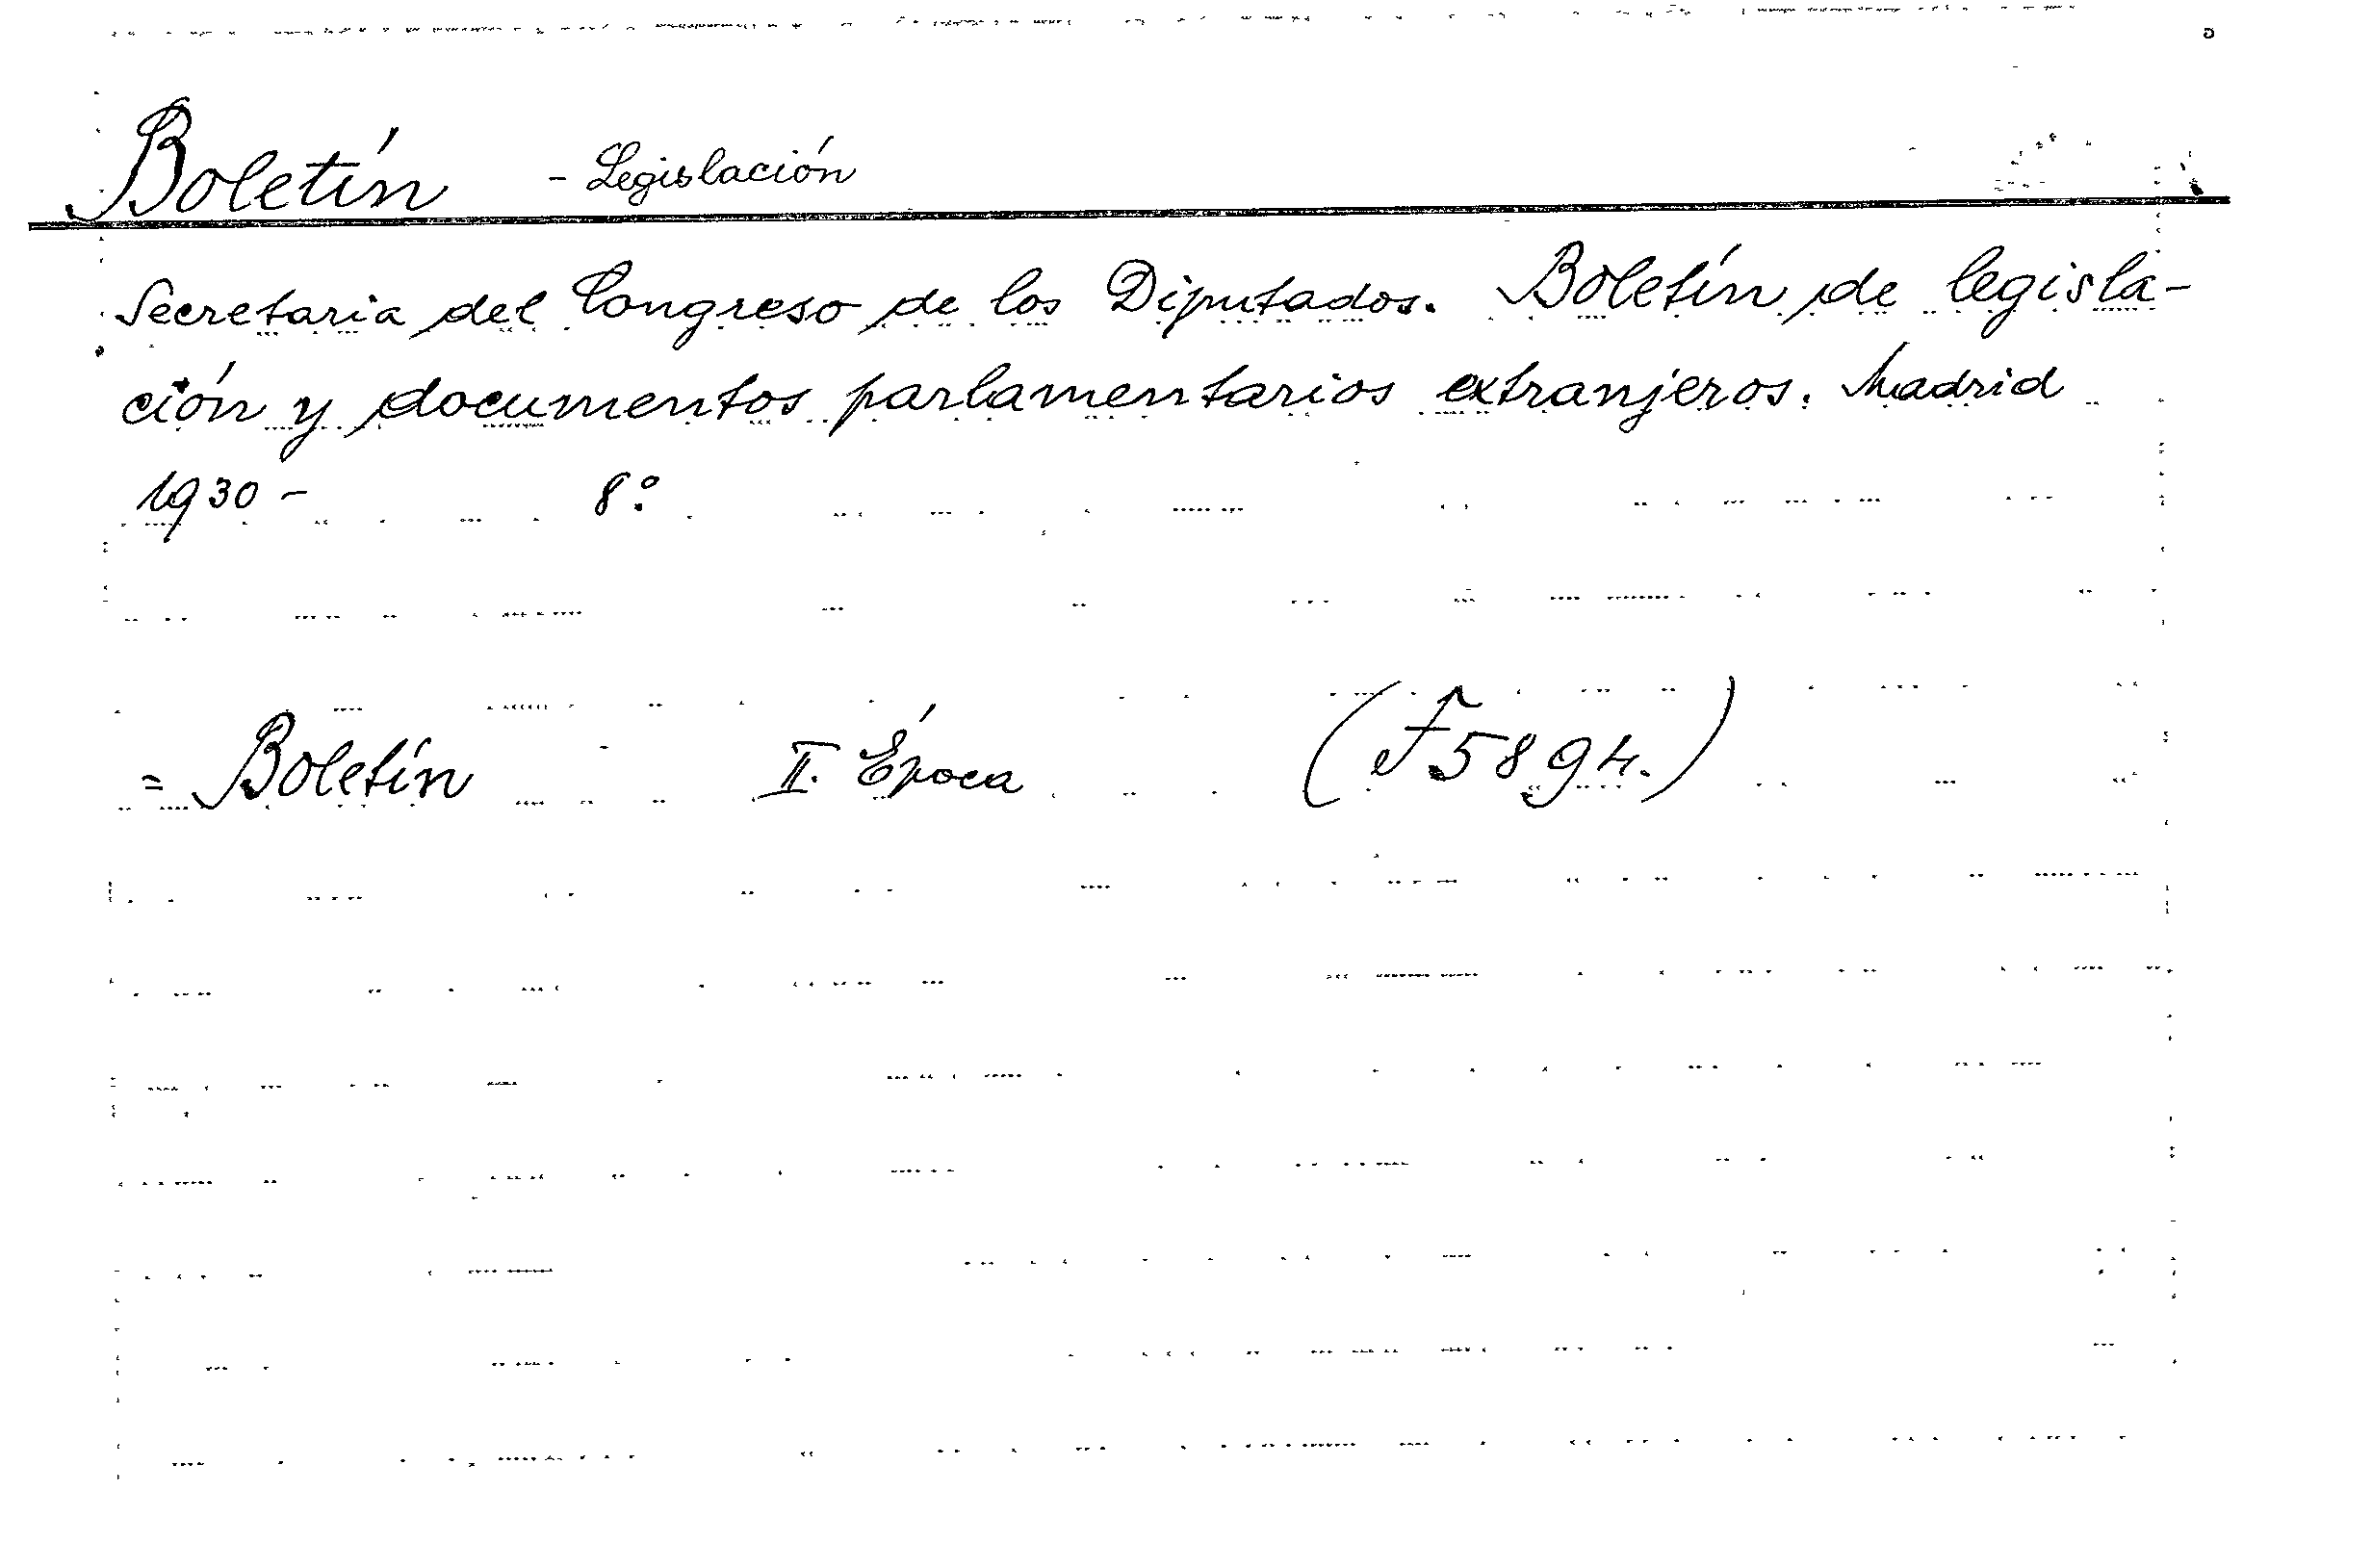 Boletín - Legislación
Secretaria del Congreso de los Diputados. Boletín de legisla-
ción y documentos parlamentarios extranjeros. Madrid
1930 - 8º.
= Boletín - II. Época (F 5894.)